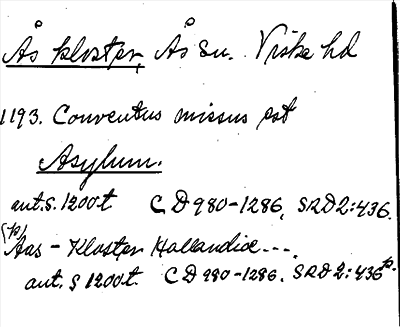 Ås kloster, Ås sn. Viske hd
1193. Conventus missus est
Asylum.
ant. s. 1200-t CD 980-1286, SRD 2:436.
(p)
Aas-Kloster Hallandiæ ---.
ant. s 1200t. CD 980-1286. SRD 2:436 p.